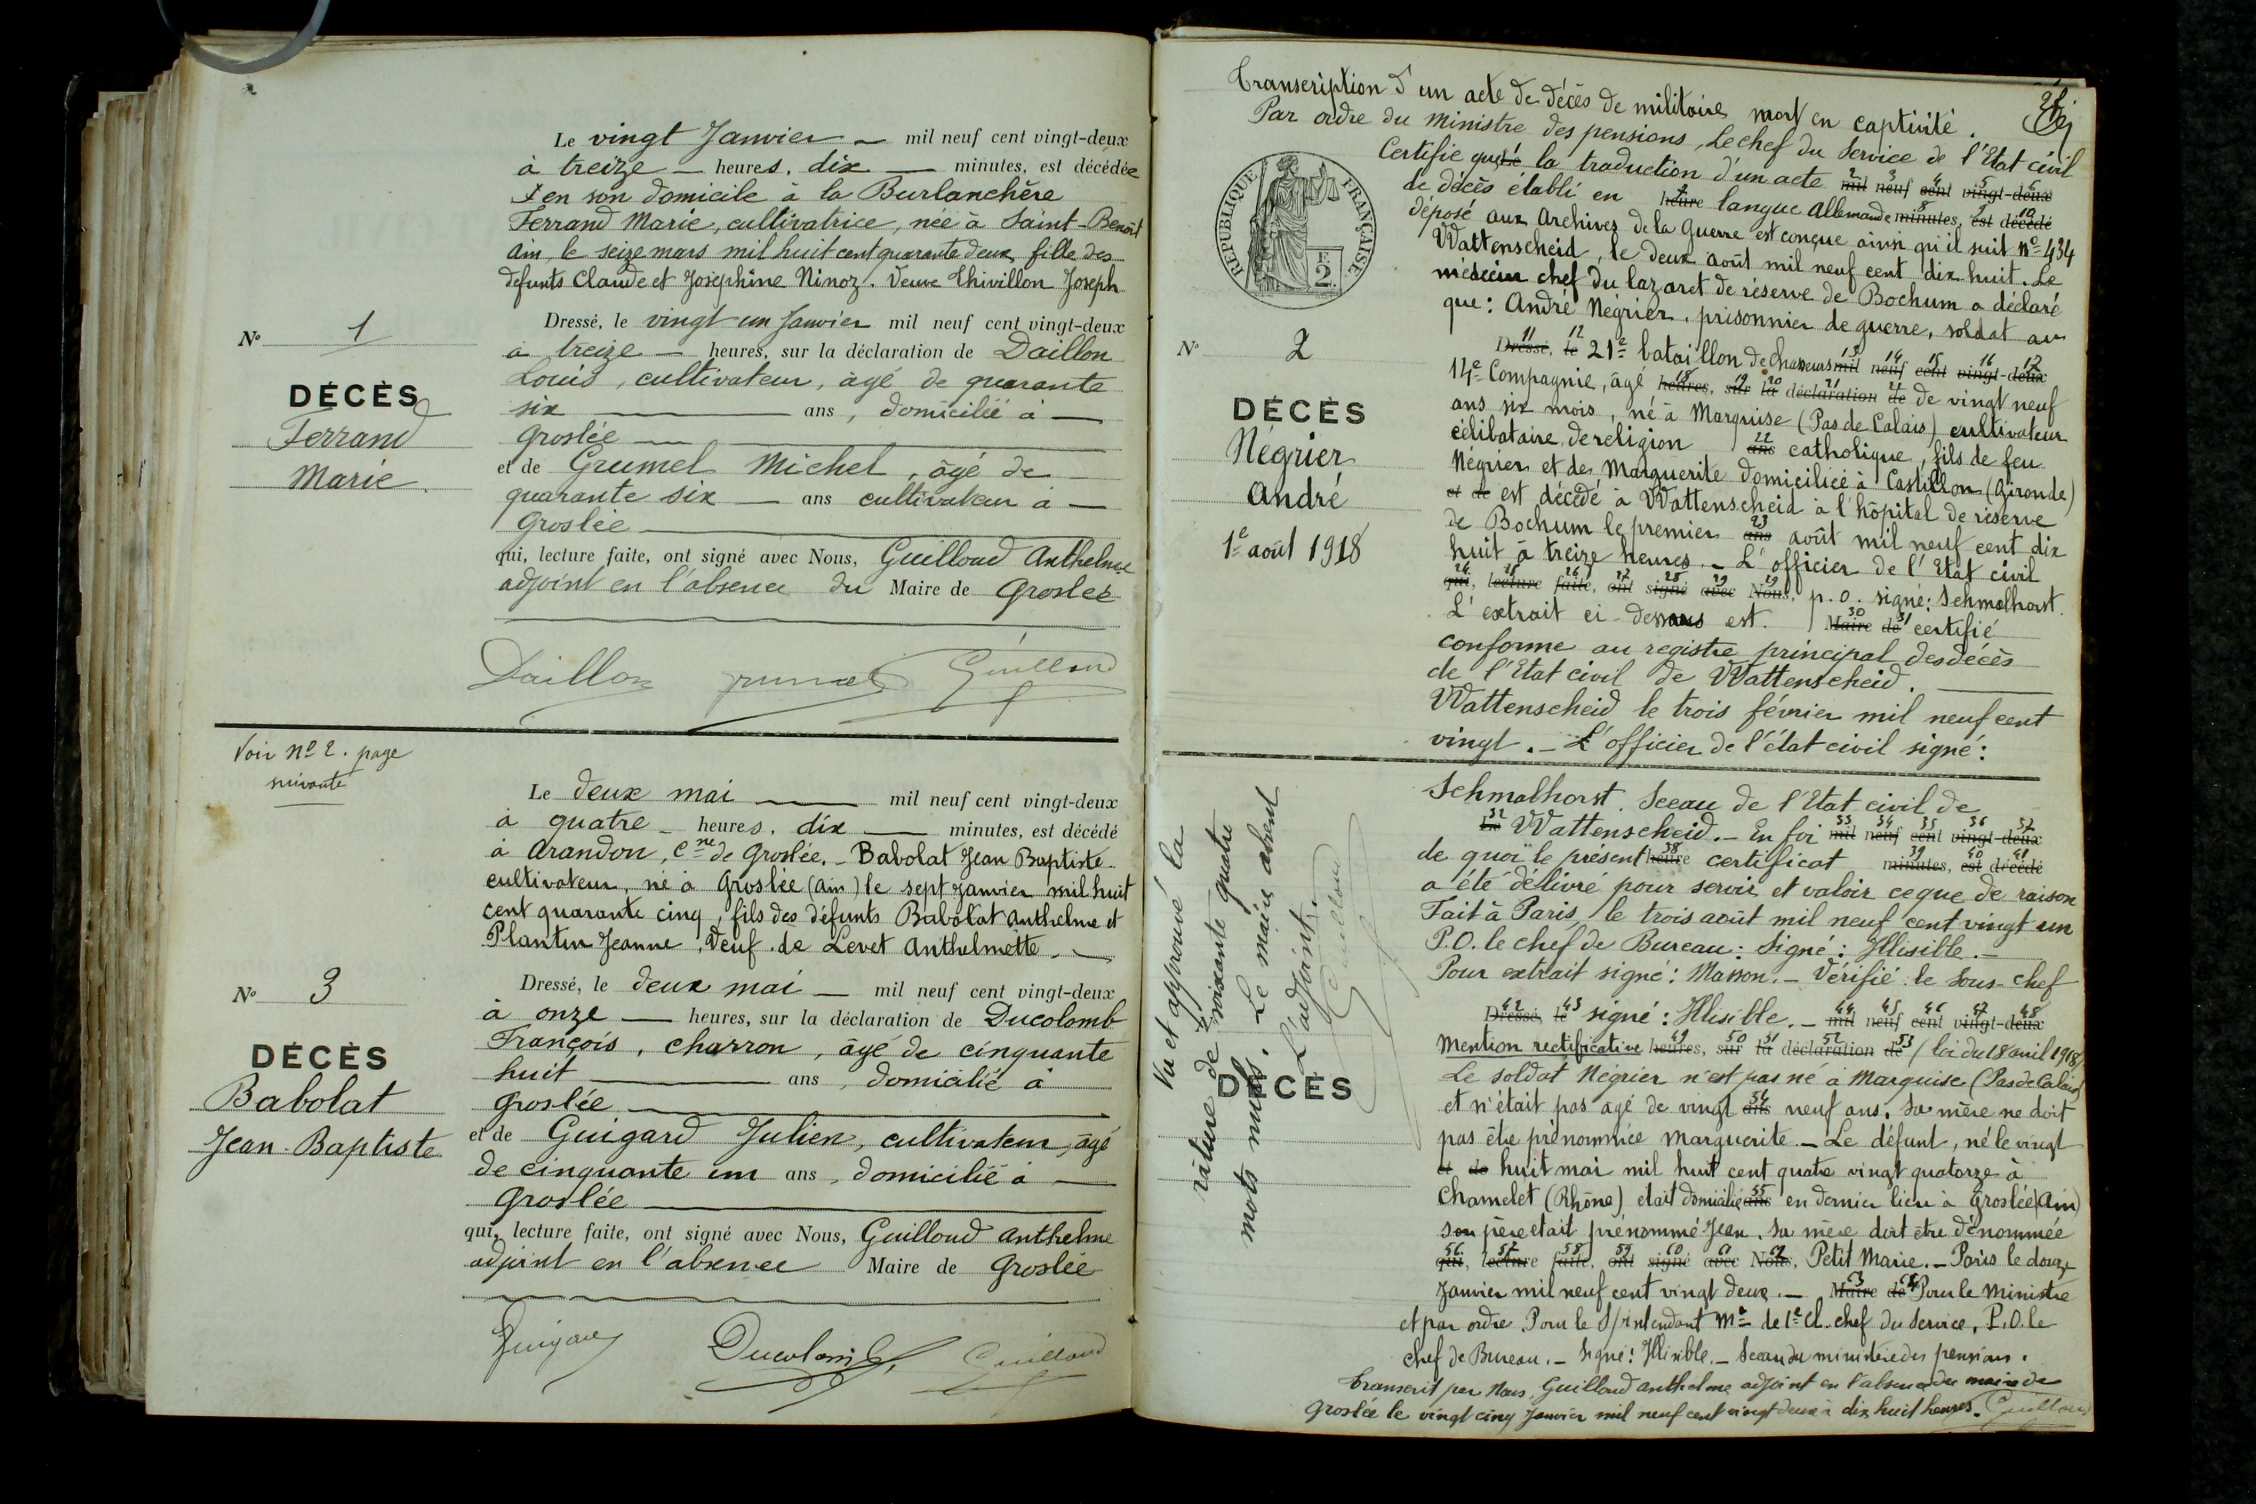 Le vingt Janvier mil neuf cent vingt-deux
à treize heures, dix minutes, est décédée
en son domicile à la Burlanchère
Ferrand Marie, cultivatrice, née à Saint-Benoît
Ain, le seize mars mil huit cent quarante deux, fille des
défunts Claude et Joséphine Ninoz. Veuve Thivillon Joseph
Dressé, le vingt un Janvier mil neuf cent vingt-deux
à treize heures, sur la déclaration de Daillon
Louis, cultivateur, âgé de quarante
six ans, domicilié à
Groslée
et de Grumel Michel, âgé de
quarante six ans cultivateur à
Groslée
qui, lecture faite, ont signé avec Nous, Guilloud Anthelme
adjoint en l'absence du Maire de Groslée
N° 1
DÉCÈS
Ferrand
Marie
Daillon Grumel Guilloud
Voir N° 2. page
suivante
Le deux mai mil neuf cent vingt-deux
à quatre heures, dix minutes, est décédé
à Arandon, Cne de Groslée. - Babolat Jean Baptiste
cultivateur, né à Groslée (Ain) le sept Janvier mil huit
cent quarante cinq, fils des défunts Babolat Anthelme et
Plantin Jeanne, Veuf de Levet Anthelmette.
Dressé, le deux mai mil neuf cent vingt-deux
à onze heures, sur la déclaration de Ducolomb
François, charron, âgé de cinquante
huit ans, domicilié à
Groslée
et de Guigard Julien, cultivateur, âgé
de cinquante un ans, domicilié à
Groslée
qui, lecture faite, ont signé avec Nous, Guilloud Anthelme
adjoint en l'absence Maire de Groslée
N° 3
DÉCÈS
Babolat
Jean-Baptiste
Guigard Ducolomb Guilloud
Transcription d'un acte de décès de militaire mort en captivité.
Par ordre du Ministre des pensions, Le chef du Service de l'Etat civil
Certifie que la traduction d'un acte mil neuf cent vingt-deux
de décès établi en heure langue Allemande minutes, est décédé
déposé aux Archives de la Guerre est conçue ainsi qu'il suit N° 434
Wattenscheid, le deux août mil neuf cent dix huit. Le
médecin chef du lazaret de réserve de Bochum a déclaré
que: André Négrier, prisonnier de guerre, soldat au
Dressé, le 21e bataillon de Chasseurs mil neuf cent vingt-deux
14e Compagnie, âgé heures, sur la déclaration de de vingt neuf
ans six mois, né à Marquise (Pas de Calais) cultivateur
célibataire de religion ans catholique, fils de feu
Négrier et de Marguerite domiciliée à Castillon (Gironde)
et de est décédé à Wattenscheid à l'hôpital de réserve
de Bochum le premier ans août mil neuf cent dix
huit à treize heures. - L'officier de l'Etat civil
qui, lecture faite, ont signé avec Nous, p.o. signé: Schmalhorst.
L'extrait ci-dessous est Maire de certifié
conforme au registre principal des décès
de l'Etat civil de Wattenscheid.
Wattenscheid le trois février mil neuf cent
vingt. - L'officier de l'état civil signé:
Schmalhorst. Sceau de l'Etat civil de
Le Wattenscheid. - En foi mil neuf cent vingt-deux
de quoi le présent heure certificat minutes, est décédé
a été délivré pour servir et valoir ce que de raison
Fait à Paris, le trois août mil neuf cent vingt un
P.O. le chef de Bureau: Signé: Illisible. -
Pour extrait signé: Masson. - Vérifié le Sous-chef
Dressé, le signé: Illisible. - mil neuf cent vingt-deux
Mention rectificative heures, sur la déclaration de (loi du 18 avril 1918)
Le soldat Négrier n'est pas né à Marquise (Pas de Calais)
et n'était pas âgé de vingt ans neuf ans. Sa mère ne doit
pas être prénommée Marguerite. - Le défunt, né le vingt
et de huit mai mil huit cent quatre vingt quatorze à
Chamelet (Rhône), était domicilié ans en dernier lieu à Groslée (Ain)
son père était prénommé Jean. Sa mère doit être dénommée
qui, lecture faite, ont signé avec Nous, Petit Marie. - Paris le douze
Janvier mil neuf cent vingt deux. - Maire de Pour le Ministre
et par ordre Pour le S/intendant Mre de 1e Cl. chef du Service, P.O. le
chef de Bureau. - Signé: Illisible. - Sceau du ministère des pensions.
Transcrit par Nous, Guilloud Anthelme adjoint en l'absence du maire de
Groslée le vingt cinq Janvier mil neuf cent vingt deux à dix huit heures. Guilloud
RÉPUBLIQUE FRANÇAISE
F. 2
N° 2
DÉCÈS
Négrier
André
1e août 1918
Vu et approuvé la
rature de soixante quatre
mots nuls. Le maire absent
L'adjoint.
Guilloud
DÉCÈS